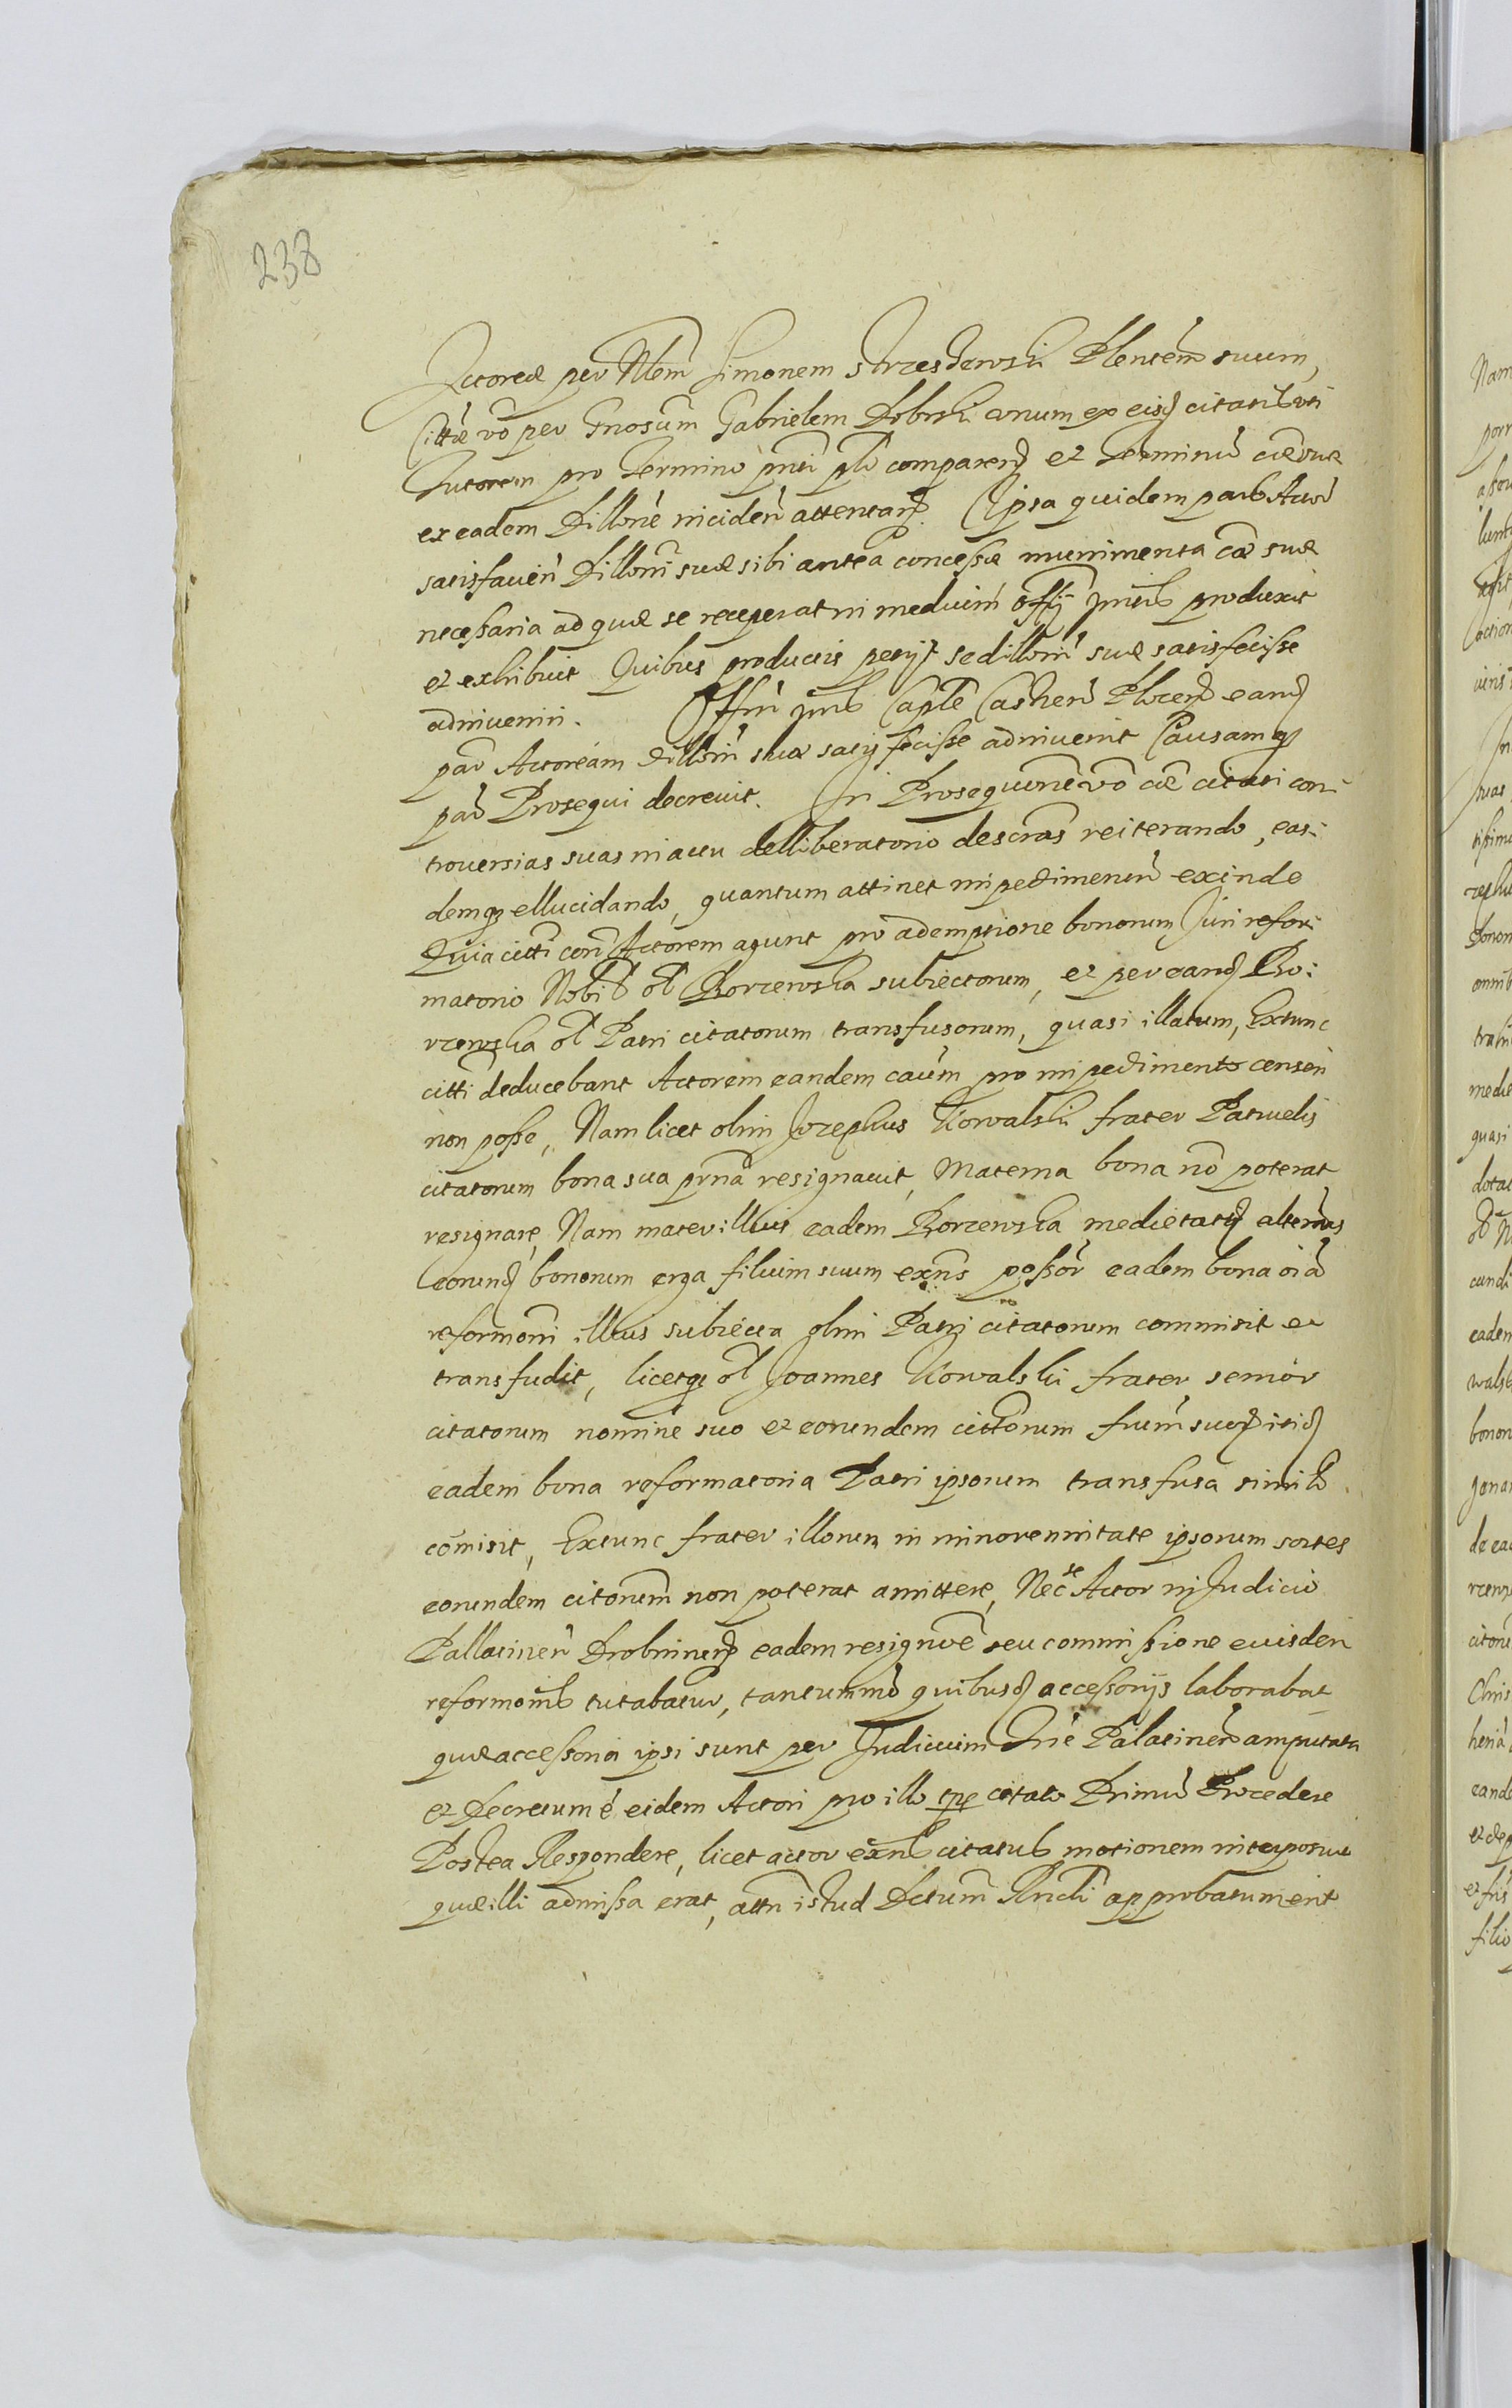 238
Actoreae per Nlem Simonem Strzeszewski Plentem suum,
Cittae vo per Gnosum Gabrielem Dobrski unum ex eisd citatis uti
Tutorem pro Termino pnti plr comparen et Terminu cae suae
ex eadem Dillone inciden attentan. Ipsa quidem pars Actor
satisfacien Dilloni suae sibi antea concessae munimenta cae suae
necessaria ad quae se receperat in medium Offij pntis produxit
et exhibuit Quibus productis petijt se dilloni suae satisfecisse
adinueniri. Offm pns Caple Castren Plocen eand
par Actoream dilloni suae satisfecisse adinuenit Causamq
par Prosequi decreuit. In Prosequone vo cae citati con:
trouersias suas in actu delliberatorio descras reiterando, eas:
demq ellucidando, quantum attinet impedimentu exinde
Quia citti con Actorem agunt pro ademptione bonorum Juri refor:
matorio Nobil ol Borzewska subiectorum, et per eand Bo:
rzewska ol Patri citatorum transfusorum, quasi illatum, Extunc
citti deducebant Actorem eandem caum pro impedimento censeri
non posse, Nam licet olim Josephus Kowalski frater Patruelis
citatorum bona sua prna resignauit, Materna bona no poterat
resignare, Nam mater illius eadem Borzewska medietatis alterius
eorund bonorum erga filium suum exns possor eadem bona oia
reformoni illius subiecta olim Patri citatorum commisit et
transfudit, licetq ol Joannes Kowalski frater senior
citatorum nomine suo et eorundem cittorum frum suor itid
eadem bona reformatoria Patri ipsorum transfusa simil
comisit, Extunc frater illorum in minorennitate ipsorum sortes
eorundem citorum non poterat amittere, Nec se Actor in Judicio
Pallatinen Drobninen eadem resignone seu commissione euisdem
reformonis tutabatur, tantummo quibusd accessorijs laborabat
quae accessoria ipsi sunt per Judicium Tre Palatinen amputata
et Decretum e eidem Actori pro illo tpe citato Primu Procedere
Postea Respondere, licet actor exns citatus motionem interposuit
quae illi admissa erat, attn istud Dctum Rncli approbatum erit